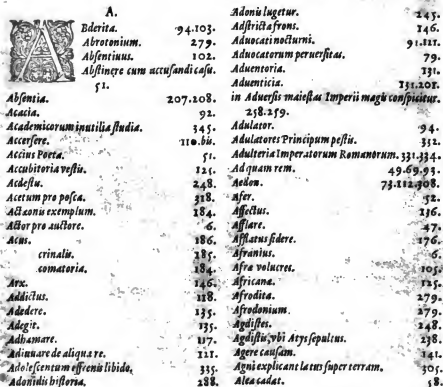 A.
ABderita. 94.103.
Abrotonium. 279.
Abſentiuus. 102.
Abſtinere cum accuſandi caſu.
51.
Abſentia. 207.208.
Acacia. 92.
Academicorum inutilia ſtudia. 345.
Accerſere. 110.bis.
Accius Poeta. 51.
Accubitoria veſtis. 125.
Acdeſtu. 248.
Acetum pro poſca. 318.
Actæonis exemplum. 184.
Actor pro auctore. 6.
Acus. 186.
crinalis. 185.
comatoria. 184.
Arx. 146.
Addictus. 118.
Adedere. 135.
Adegit. 135.
Adhamare. 117.
Adiuuare de aliqua re. 121.
Adoleſcentum effrenis libido. 335.
Adonidis hiſtoria. 288.
Adonis lugetur. 243.
Adſtricta frons. 146.
Aduocati nocturni. 91.111.
Aduocatorum peruerſitas. 79.
Aduentoria. 131.
Aduenticia. 131.201.
in Aduerſis maieſtas Imperii magis conſpicitur.
258.259.
Adulator. 94.
Adulatores Principum peſtis. 352.
Adulteria Imperatorum Romanorum. 331.334.
Ad quam rem. 49.69.93.
Aedon. 73.112.308.
Afer. 52.
Affectus. 136.
Afflare. 47.
Afflatus ſidere. 176.
Afranius. 6.
Afra volucres. 105.
Africana. 125.
Afrodita. 279.
Afrodonium. 279.
Agdiſtes. 248.
Agdiſtis, vbi Atys ſepultus. 238.
Agere cauſam. 141.
Agni explicant latus ſuper terram. 305.
Alea cadat. 18.